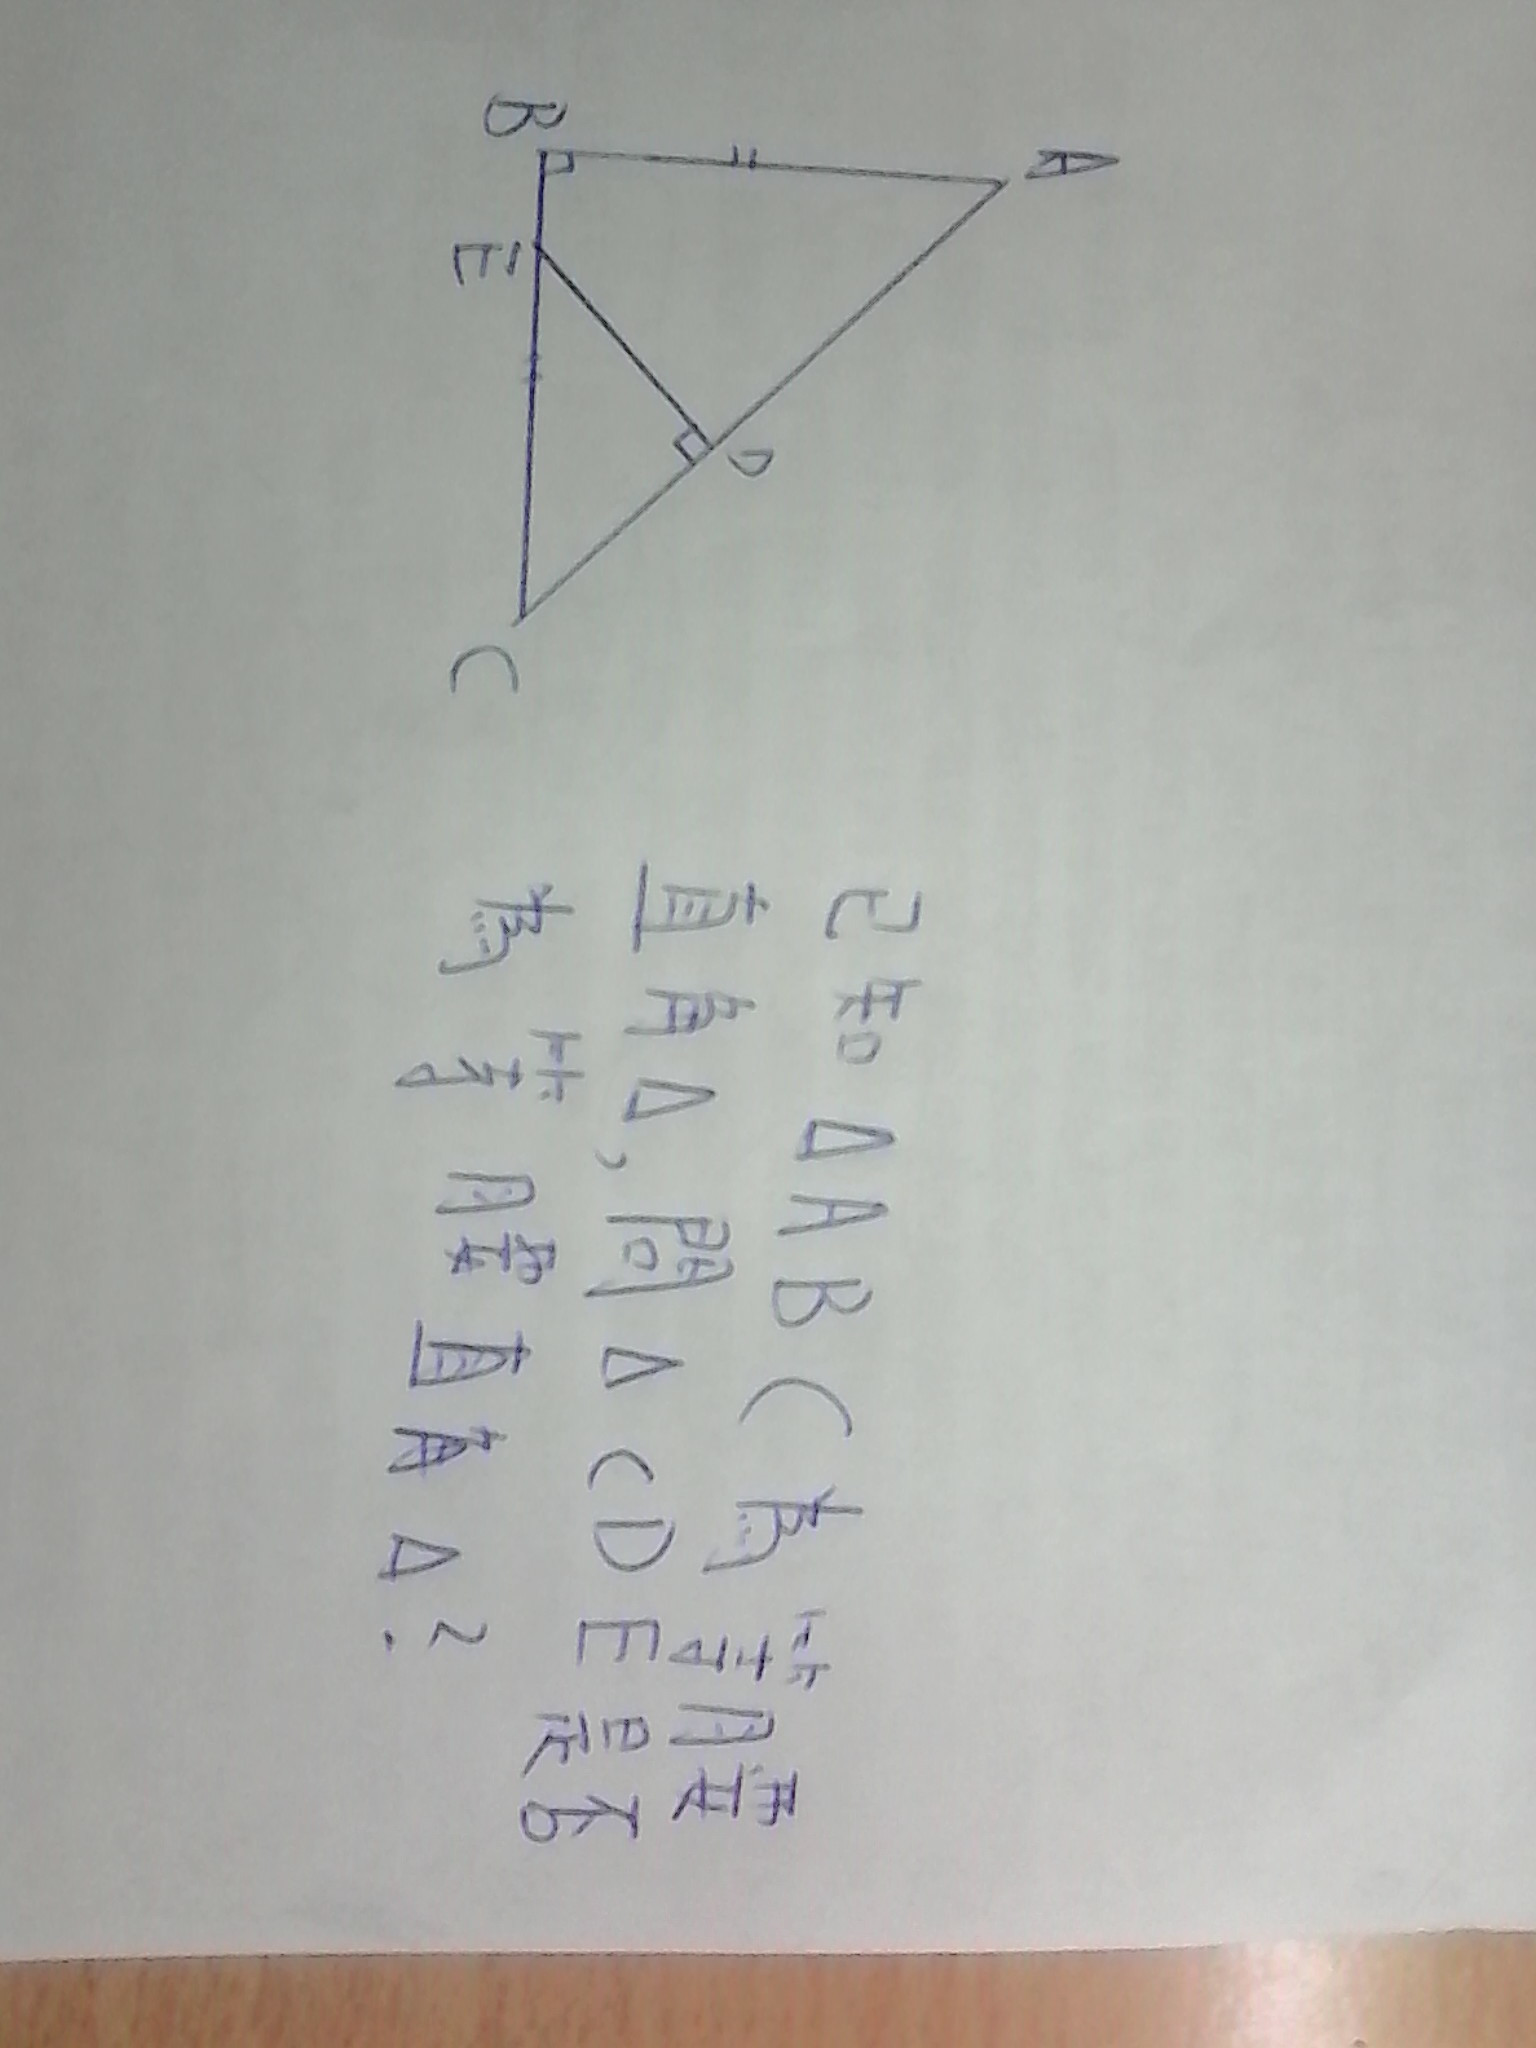 A
B
E
D
C
已知△ABC為等腰
直角△,問△CDE是否
為等腰直角△?